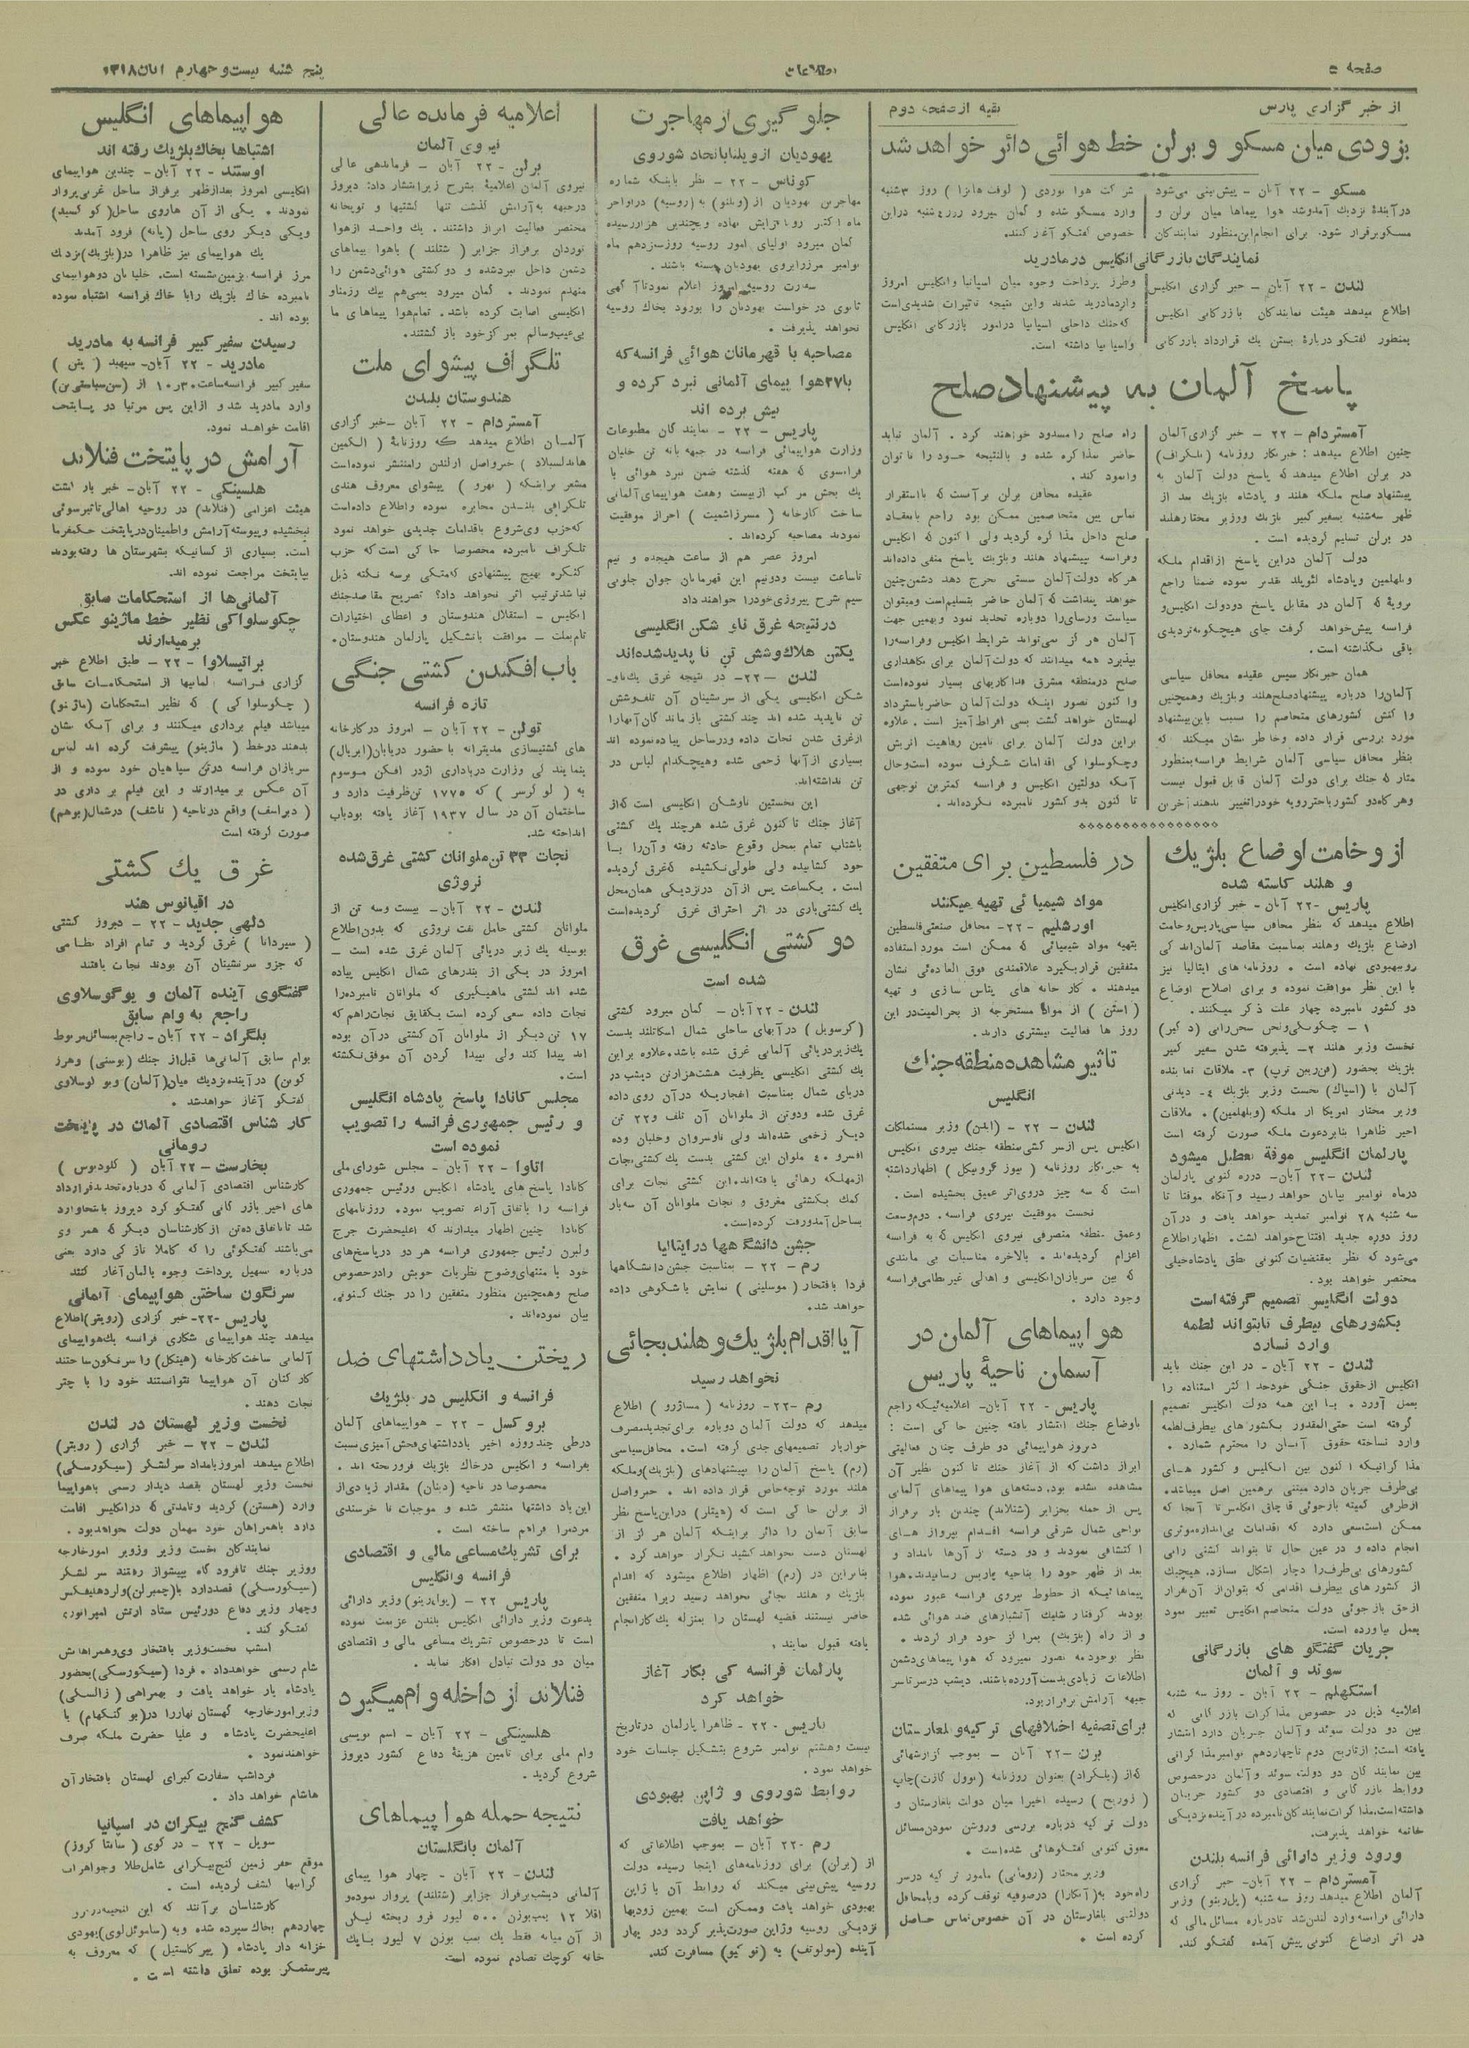 صفحه ۵
اطلاعات
پنج شنبه بیست و چهارم آبان ۱۳۱۸
از خبر گزاری پارس
بقیه از صفحه دوم
بزودی میان مسکو و برلن خط هوائی دائر خواهد شد
مسکو - ۲۲ آبان - پیش بینی می‌شود
در آینده نزدیک آمدوشد هوا پیماها میان برلن و
مسکو برقرار شود. برای انجام این منظور نمایندگان
شرکت هوا نوردی (لوفت هانزا) روز ۳شنبه
وارد مسکو شده و گمان میرود روز ۴شنبه دراین
خصوص گفتگو آغاز کنند.
نمایندگان بازرگانی انگلیس در مادرید
لندن - ۲۲ آبان - خبر گزاری انگلیس
اطلاع میدهد هیئت نمایندگان بازرگانی انگلیس
بمنظور گفتگو دربارهٔ بستن یک قرارداد بازرگانی
وطرز پرداخت وجوه میان اسپانیا وانگلیس امروز
وارد مادرید شدند واین نتیجه تاثیرات شدیدی است
که جنک داخلی اسپانیا درامور بازرگانی انگلیس
واسپانیا داشته است.
پاسخ آلمان به پیشنهاد صلح
آمستردام - ۲۲ - خبر گزاری آلمان
چنین اطلاع میدهد: خبرنگار روزنامه (تلگراف)
در برلن اطلاع میدهد که پاسخ دولت آلمان به
پیشنهاد صلح ملکه هلند و پادشاه بلژیک بعد از
ظهر سه‌شنبه بسفیر کبیر بلژیک ووزیر مختار هلند
در برلن تسلیم گردیده است.
دولت آلمان دراین پاسخ ازاقدام ملکه
ویلهلمین وپادشاه لئوپلد تقدیر نموده ضمنا راجع
برویهٔ که آلمان در مقابل پاسخ دودولت انگلیس و
فرانسه پیش خواهد گرفت جای هیچگونه تردیدی
باقی نگذاشته است.
همان خبرنگار سپس عقیده محافل سیاسی
آلمان را درباره پیشنهاد صلح هلند وبلژیک وهمچنین
واکنش کشورهای متخاصم را نسبت باین پیشنهاد
مورد بررسی قرار داده وخاطر نشان میکند که
بنظر محافل سیاسی آلمان شرایط فرانسه بمنظور
متارکه جنک برای دولت آلمان قابل قبول نیست
وهرگاه دو کشور باختر رویه خود را تغییر ندهند آخرین
راه صلح را مسدود خواهند کرد. آلمان نباید
حاضر بمذاکره شده و بالنتیجه خود را ناتوان
وانمود کند.
عقیده محافل برلن برآنست که باستقرار
تماس بین متخاصمین ممکن بود راجع بانعقاد
صلح داخل مذاکره گردید ولی اکنون که انگلیس
وفرانسه بپیشنهاد هلند وبلژیک پاسخ منفی داده‌اند
هرگاه دولت آلمان سستی بخرج دهد دشمن چنین
خواهد پنداشت که آلمان حاضر بتسلیم است ومیتوان
سیاست ورسای را دوباره تجدید نمود وبهمین جهت
آلمان هرگز نمی‌تواند شرایط انگلیس وفرانسه را
بپذیرد همه میدانند که دولت آلمان برای نگاهداری
صلح درمنطقه مشرق فداکاریهای بسیار نموده است
واکنون تصور اینکه دولت آلمان حاضر باسترداد
لهستان خواهد گشت بسی افراط آمیز است. علاوه
براین دولت آلمان برای تامین رفاهیت اتریش
وچکوسلواکی اقدامات شگرف نموده است وحال
آنکه دولتین انگلیس و فرانسه کمترین توجهی
تا کنون بدو کشور نامبرده نکرده‌اند.
از وخامت اوضاع بلژیک
و هلند کاسته شده
پاریس - ۲۲ آبان - خبر گزاری انگلیس
اطلاع میدهد که بنظر محافل سیاسی پاریس وخامت
اوضاع بلژیک وهلند بمناسبت مقاصد آلمان اندکی
روببهبودی نهاده است. روزنامه‌های ایتالیا نیز
با این نظر موافقت نموده و برای اصلاح اوضاع
دو کشور نامبرده چهار علت ذکر میکنند.
۱ - چگونگی ولحن سخنرانی (د گیر)
نخست وزیر هلند ۲- پذیرفته شدن سفیر کبیر
بلژیک بحضور (فن ریبن تروپ) ۳- ملاقات نماینده
آلمان با (اسپاک) نخست وزیر بلژیک ۴- دیدنی
وزیر مختار امریکا از ملکه (ویلهلمین). ملاقات
اخیر ظاهرا بنابردعوت ملکه صورت گرفته است
پارلمان انگلیس موقة تعطیل میشود
لندن - ۲۲ آبان- دوره کنونی پارلمان
درماه نوامبر بپایان خواهد رسید وآنگاه موقتا تا
سه شنبه ۲۸ نوامبر تمدید خواهد یافت و درآن
روز دوره جدید افتتاح خواهد گشت. اظهار اطلاع
می‌شود که نظر بمقتضیات کنونی نطق پادشاه خیلی
مختصر خواهد بود.
دولت انگلیس تصمیم گرفته است
بکشورهای بیطرف تابتواند لطمه
وارد نسازد
لندن - ۲۲ آبان - در این جنک باید
انگلیس ازحقوق جنگی خود حد اکثر استفاده را
بعمل آورد. با این همه دولت انگلیس تصمیم
گرفته است حتی المقدور بکشور های بیطرف لطمه
وارد نساخته حقوق آنسان را محترم شمارد.
مذاکراتیکه اکنون بین انگلیس و کشور های
بی‌طرف جریان دارد مبتنی برهمین اصل میباشد.
ازطرفی کمیته بازجوئی قاچاق انگلیس تا آنجا که
ممکن است سعی دارد که اقدامات بی‌اندازه موثری
انجام داده و در عین حال تا بتواند کشتی رانی
کشورهای بی‌طرف را دچار اشکال نسازد. هیچیک
از کشور های بیطرف اقدامی که بتوان از آن فرار
ازحق بازجوئی دولت متخاصم انگلیس تعبیر نمود
بعمل نیاورده است.
جریان گفتگو های بازرگانی
سوئد و آلمان
استکهلم - ۲۲ آبان - روز سه شنبه
اعلامیه ذیل در خصوص مذاکرات بازرگانی که
بین دو دولت سوئد و آلمان جریان دارد انتشار
یافته است: از تاریخ دوم تا چهاردهم نوامبر مذاکراتی
بین نمایندگان دو دولت سوئد و آلمان درخصوص
روابط بازرگانی و اقتصادی دو کشور جریان
داشته است. مذاکرات نمایندگان نامبرده در آینده نزدیکی
خاتمه خواهد پذیرفت.
ورود وزیر دارائی فرانسه بلندن
آمستردام - ۲۲ آبان- خبر گزاری
آلمان اطلاع میدهد روز سه شنبه (پل رینو) وزیر
دارائی فرانسه وارد لندن شد تا درباره مسائل مالی که
در اثر اوضاع کنونی پیش آمده گفتگو کند.
در فلسطین برای متفقین
مواد شیمیائی تهیه میکنند
اورشلیم - ۲۲- محافل صنعتی فلسطین
بتهیه مواد شیمیائی که ممکن است مورد استفاده
متفقین قرار بگیرد علاقمندی فوق العاده‌ئی نشان
میدهند. کارخانه های پتاس سازی و تهیه
(استن) از مواد مستخرجه از بحرالمیت در این
روز ها فعالیت بیشتری دارند.
تاثیر مشاهده منطقه جنک
انگلیس
لندن - ۲۲ - (ایدن) وزیر مستملکات
انگلیس پس از سر کشی منطقه جنک نیروی انگلیس
به خبر نگار روزنامه (نیوز کرونیکل) اظهارداشته
است که سه چیز دروی اثر عمیق بخشیده است.
نخست موفقیت نیروی فرانسه. دوم وسعت
وعمق منطقه متصرفی نیروی انگلیس که به فرانسه
اعزام گردیده‌اند. بالاخره مناسبات بی مانندی
که بین سربازان انگلیسی و اهالی غیر نظامی فرانسه
وجود دارد.
هواپیماهای آلمان در
آسمان ناحیهٔ پاریس
پاریس - ۲۲ آبان- اعلامیه‌ایکه راجع
باوضاع جنک انتشار یافته چنین حاکی است:
دیروز هواپیمائی دو طرف چنان فعالیتی
ابراز داشت که از آغاز جنک تا کنون نظیر آن
مشاهده نشده بود. دسته‌های هوا پیماهای آلمانی
پس از حمله بجزایر (شتلاند) چندین بار برفراز
نواحی شمال شرقی فرانسه اقدام بپرواز های
اکتشافی نمودند و دو دسته از آن‌ها بامداد و
بعد از ظهر خود را بناحیه پاریس رسانیدند. هوا
پیماهائیکه از خطوط نیروی فرانسه عبور نموده
بودند گرفتار شلیک آتشبارهای ضد هوائی شده
و از راه (بلژیک) بمرا از خود فرار کردند.
نظر بوجود مه تصور نمیرود که هوا پیماهای دشمن
اطلاعات زیادی بدست آورده باشند. دیشب درسرتاسر
جبهه آرامش برقرار بود.
برای تصفیه اختلافهای ترکیه و بلغارستان
برن - ۲۲ آبان - بموجب گزارشهائی
که از (بلگراد) بعنوان روزنامه (نوول گازت) چاپ
(زوریخ) رسیده اخیرا میان دولت بلغارستان و
دولت ترکیه درباره بررسی وروشن نمودن مسائل
معوق کنونی گفتگوهائی شده است.
وزیر مختار (رومانی) مامور ترکیه درسر
راه خود به (آنکارا) درصوفیه توقف کرده و با محافل
دولتی بلغارستان در آن خصوص تماس حاصل
کرده است.
جلوگیری از مهاجرت
یهودیان از ویلنا باتحاد شوروی
کوناس - ۲۲ - نظر باینکه شماره
مهاجرین یهودیان از (ویلنو) به (روسیه) دراواخر
ماه اکتبر روبافزایش نهاده وبچندین هزار رسیده
گمان میرود اولیای امور روسیه روز سیزدهم ماه
نوامبر مرز را بروی یهودیان بسته باشند.
سفارت روسیه امروز اعلام نمود تا آگهی
ثانوی درخواست یهودیان را بورود بخاک روسیه
نخواهد پذیرفت.
مصاحبه با قهرمانان هوائی فرانسه که
با ۲۷ هوا پیمای آلمانی نبرد کرده و
پیش برده اند
پاریس - ۲۲ - نمایندگان مطبوعات
وزارت هواپیمائی فرانسه در جبهه بانه تن خلبان
فرانسوی که هفته گذشته ضمن نبرد هوائی با
یک بخش مرکب از بیست وهفت هواپیمای آلمانی
ساخت کارخانه (مسرشمیت) احراز موفقیت
نمودند مصاحبه کرده‌اند.
امروز عصر هم از ساعت هیجده و نیم
تا ساعت بیست ودونیم این قهرمانان جوان جلوبی
سیم شرح پیروزی خود را خواهند داد
در نتیجه غرق ناو شکن انگلیسی
یکتن هلاک وشش تن ناپدید شده‌اند
لندن -۲۲- در نتیجه غرق یک ناو-
شکن انگلیسی یکی از سرنشینان آن تلف و شش
تن ناپدید شده اند چند کشتی بازماندگان آنها را
ازغرق شدن نجات داده و درساحل پیاده نموده اند
بسیاری از آنها زخمی شده و هیچکدام لباس در
تن نداشته‌اند.
این نخستین ناوشکن انگلیسی است که از
آغاز جنک تا کنون غرق شده هرچند یک کشتی
باشتاب تمام بمحل وقوع حادثه رفته و آن را با
خود کشانیده ولی طولی نکشیده که غرق گردیده
است. یکساعت پس از آن درنزدیکی همان محل
یک کشتی باری در اثر احتراق غرق گردیده است
دو کشتی انگلیسی غرق
شده است
لندن - ۲۲ آبان - گمان میرود کشتی
(کرسویل) درآبهای ساحلی شمال اسکاتلند بدست
یک زیردریائی آلمانی غرق شده باشد. علاوه براین
یک کشتی انگلیسی بظرفیت هشت‌هزارتن دیشب در
دریای شمال بمناسبت انفجاریکه درآن روی داده
غرق شده ودوتن از ملوانان آن تلف و۲۲ تن
دیگر زخمی شده‌اند ولی ناوسروان وخلبان و ده
افسر و ۴۰ ملوان این کشتی بدست یک کشتی نجات
ازمهلکه رهائی یافته‌اند. این کشتی نجات برای
کمک بکشتی مغروق و نجات ملوانان آن سه بار
بساحل آمدورفت کرده است.
جشن دانشگاهها در ایتالیا
رم - ۲۲ - بمناسبت جشن دانشگاهها
فردا بافتخار (موسلینی) نمایش باشکوهی داده
خواهد شد.
آیا اقدام بلژیک و هلند بجائی
نخواهد رسید
رم -۲۲- روزنامه (مساژرو) اطلاع
میدهد که دولت آلمان دوباره برای تجدید مصرف
خواربار تصمیمهای جدی گرفته است. محافل سیاسی
(رم) پاسخ آلمان را بپیشنهادهای (بلژیک) وملکه
هلند مورد توجه خاص قرار داده اند. خبر واصل
از برلن حاکی است که (هیتلر) دراین پاسخ نظر
سابق آلمان را دائر براینکه آلمان هرگز از
لهستان دست نخواهد کشید تکرار خواهد کرد.
بنابراین در (رم) اظهار اطلاع میشود که اقدام
بلژیک و هلند بجائی نخواهد رسید زیرا متفقین
حاضر نیستند قضیه لهستان را بمنزله یک کار انجام
یافته قبول نمایند.
پارلمان فرانسه کی بکار آغاز
خواهد کرد
پاریس - ۲۲ - ظاهرا پارلمان درتاریخ
بیست وهشتم نوامبر شروع بتشکیل جلسات خود
خواهد نمود.
روابط شوروی و ژاپن بهبودی
خواهد یافت
رم -۲۲ آبان - بموجب اطلاعاتی که
از (برلن) برای روزنامه‌های اینجا رسیده دولت
روسیه پیش‌بینی میکند که روابط آن با ژاپن
بهبودی خواهد یافت وممکن است بهمین زودیها
نزدیکی روسیه وژاپن صورت پذیر گردد ودر بهار
آینده (مولوتف) به (توکیو) مسافرت کند.
اعلامیه فرمانده عالی
نیروی آلمان
برلن - ۲۲ آبان - فرماندهی عالی
نیروی آلمان اعلامیهٔ بشرح زیرانتشار داد: دیروز
درجبهه به‌آرامش گذشت تنها گشتیها و توپخانه
مختصر فعالیت ابراز داشتند. یک واحد ازهوا
نوردان برفراز جزایر (شتلند) باهوا پیماهای
دشمن داخل نبردشده و دو کشتی هوائی دشمن را
منهدم نمودند. گمان میرود بمبی هم بیک رزمناو
انگلیسی اصابت کرده باشد. تمام هوا پیماهای ما
بی‌عیب وسالم بمرکزخود باز گشتند.
تلگراف پیشوای ملت
هندوستان بلندن
آمستردام - ۲۲ آبان -خبر گزاری
آلمان اطلاع میدهد که روزنامه (الگمین
هاندلسبلاد) خبرواصل ازلندن رامنتشر نموده است
مشعر براینکه (نهرو) پیشوای معروف هندی
تلگرافی بلندن مخابره نموده و اطلاع داده است
که حزب وی شروع باقدامات جدیدی خواهد نمود
تلگراف نامبرده مخصوصا حاکی است که حزب
کنگره بهیچ پیشنهادی که متکی برسه نکته ذیل
نباشد ترتیب اثر نخواهد داد؛ تصریح مقاصد جنک
انگلیس - استقلال هندوستان و اعطای اختیارات
تام بملت - موافقت باتشکیل پارلمان هندوستان.
بآب افکندن کشتی جنگی
تازه فرانسه
تولن - ۲۲ آبان - امروز در کارخانه
های کشتیسازی مدیترانه با حضور دریابان (ابریال)
بنمایندگی وزارت دریاداری اژدر افکن موسوم
به (لوکرسر) که ۱۷۷۵ تن ظرفیت دارد و
ساختمان آن در سال ۱۹۳۷ آغاز یافته بود بآب
انداخته شد.
نجات ۲۳ تن ملوانان کشتی غرق شده
نروژی
لندن - ۲۲ آبان - بیست وسه تن از
ملوانان کشتی حامل نفت نروژی که بدون اطلاع
بوسیله یک زیر دریائی آلمان غرق شده است -
امروز در یکی از بندرهای شمال انگلیس پیاده
شده اند کشتی ماهیگیری که ملوانان نامبرده را
نجات داده سعی کرده است یک قایق نجات راهم که
۱۷ تن دیگر از ملوانان آن کشتی درآن بوده
اند پیدا کند ولی بپیدا کردن آن موفق نگشته
است.
مجلس کانادا پاسخ پادشاه انگلیس
و رئیس جمهوری فرانسه را تصویب
نموده است
اتاوا - ۲۲ آبان - مجلس شورای ملی
کانادا پاسخ های پادشاه انگلیس ورئیس جمهوری
فرانسه را باتفاق آراء تصویب نمود. روزنامهای
کانادا چنین اظهار میدارند که اعلیحضرت جرج
ولبرن رئیس جمهوری فرانسه هر دو درپاسخهای
خود با منتهای وضوح نظریات خویش رادرخصوص
صلح وهمچنین منظور متفقین را در جنک کنونی
بیان نموده‌اند.
ریختن یادداشتهای ضد
فرانسه و انگلیس در بلژیک
بروکسل - ۲۲ - هواپیماهای آلمان
درطی چند روزه اخیر یادداشتهای فحش آمیزی نسبت
بفرانسه و انگلیس درخاک بلژیک فروریخته اند.
مخصوصا در ناحیه (دینان) مقدار زیادی از
این یاد داشتها منتشر شده و موجبات ناخرسندی
مردم را فراهم ساخته است.
برای تشریک مساعی مالی و اقتصادی
فرانسه و انگلیس
پاریس - ۲۲ - (پول رینو) وزیر دارائی
بدعوت وزیر دارائی انگلیس بلندن عزیمت نموده
است تا درخصوص تشریک مساعی مالی و اقتصادی
میان دو دولت تبادل افکار نماید.
فنلاند از داخله وام میگیرد
هلسینکی - ۲۲ آبان - اسم نویسی
وام ملی برای تامین هزینهٔ دفاع کشور دیروز
شروع گردید.
نتیجه حمله هواپیماهای
آلمان بانگلستان
لندن - ۲۲ آبان - چهار هوا پیمای
آلمانی دیشب برفراز جزایر (شتلند) پرواز نموده و
اقلا ۱۲ بمب بوزن ۵۰۰ لیور فرو ریخته لیکن
از آن میانه فقط یک بمب بوزن ۷ لیور با یک
خانه کوچک تصادم نموده است
هواپیماهای انگلیس
اشتباها بخاک بلژیک رفته اند
اوستند - ۲۲ آبان - چندین هواپیمای
انگلیسی امروز بعدازظهر برفراز ساحل غربی پرواز
نمودند. یکی از آن هاروی ساحل (کو کسید)
ویکی دیگر روی ساحل (پانه) فرود آمدند
یک هواپیمای نیز ظاهرا در (بلژیک) نزدیک
مرز فرانسه بزمین نشسته است. خلبانان دوهواپیمای
نامبرده خاک بلژیک را با خاک فرانسه اشتباه نموده
بوده اند.
رسیدن سفیر کبیر فرانسه به مادرید
مادرید - ۲۲ آبان- سپهبد (پتن)
سفیر کبیر فرانسه ساعت ۱۰٫۳۰ از (سن سباستین)
وارد مادرید شد و ازاین پس مرتبا در پایتخت
اقامت خواهد نمود.
آرامش در پایتخت فنلاند
هلسینکی - ۲۲ آبان - خبر باز گشت
هیئت اعزامی (فنلاند) در روحیه اهالی تاثیر سوئی
نبخشیده و پیوسته آرامش و اطمینان در پایتخت حکمفرما
است. بسیاری از کسانیکه بشهرستان ها رفته بودند
بپایتخت مراجعت نموده اند.
آلمانی‌ها از استحکامات سابق
چکوسلواکی نظیر خط ماژینو عکس
برمیدارند
براتیسلاوا - ۲۲ - طبق اطلاع خبر
گزاری فرانسه آلمانیها از استحکامات سابق
(چکوسلواکی) که نظیر استحکامات (ماژینو)
میباشد فیلم برداری میکنند و برای آنکه نشان
بدهند درخط (ماژینو) پیشرفت کرده اند لباس
سربازان فرانسه درتن سپاهیان خود نموده و از
آن عکس بر میدارند و این فیلم برداری در
(دبراسف) واقع درناحیه (ناشف) درشمال (بوهم)
صورت گرفته است
غرق یک کشتی
در اقیانوس هند
دلهی جدید - ۲۲ - دیروز کشتی
(سیردانا) غرق گردید و تمام افراد نظامی
که جزو سرنشینان آن بودند نجات یافتند
گفتگوی آینده آلمان و یوگوسلاوی
راجع به وام سابق
بلگراد - ۲۲ آبان - راجع بمسائل مربوط
بوام سابق آلمانی‌ها قبل از جنک (بوسنی) وهرز
کوین) درآینده نزدیک میان (آلمان) ویو گوسلاوی
گفتگو آغاز خواهد شد.
کار شناس اقتصادی آلمان در پایتخت
رومانی
بخارست - ۲۲ آبان (کلودیوس)
کارشناس اقتصادی آلمانی که درباره تجدید قرارداد
های اخیر بازرگانی گفتگو کرد دیروز بابتخت وارد
شد تا باتفاق ده‌تن از کارشناسان دیگر که همر وی
می‌باشند گفتگوئی را که کاملا تازگی دارد یعنی
درباره تسهیل پرداخت وجوه بآلمان آغاز کنند
سرنگون ساختن هواپیمای آلمانی
پاریس -۲۲- خبر گزاری (رویتر) اطلاع
میدهد چند هواپیمای شکاری فرانسه یک هواپیمای
آلمانی ساخت کارخانه (هینکل) را سرنگون ساختند
کارکنان آن هواپیما نتوانستند خود را با چتر
نجات دهند.
نخست وزیر لهستان در لندن
لندن - ۲۲ - خبر گزاری (رویتر)
اطلاع میدهد امروز بامداد سرلشگر (سیکورسکی)
نخست وزیر لهستان بقصد دیدار رسمی باهواپیما
وارد (هستن) گردید و تامدتی که درانگلیس اقامت
دارد باهمراهان خود مهمان دولت خواهد بود.
نمایندگان نخست وزیر ووزیر امورخارجه
ووزیر جنک تافرودگاه پیشواز رفتند سر لشگر
(سیکورسکی) قصددارد با (چمبرلن) ولرد هلیفکس
وچهار وزیر دفاع دورئیس ستاد ارتش امپراتوری
گفتگو کند.
امشب نخست وزیر بافتخار وی وهمراهانش
شام رسمی خواهد داد. فردا (سیکورسکی) بحضور
پادشاه بار خواهد یافت و بهمراهی (زالسکی)
وزیر امورخارجه لهستان نهار را در (بو کنگهام) با
اعلیحضرت پادشاه و علیا حضرت ملکه صرف
خواهند نمود.
فرداشب سفارت کبرای لهستان بافتخارآن
هاشام خواهد داد.
کشف گنج بیکران در اسپانیا
سویل - ۲۲ - در کوی (سانتا کروز)
موقع حفر زمین گنج بیکرانی شامل طلا وجواهرات
گرانبها کشف گردیده است.
کارشناسان برآنند که این گنجینه درقرن
چهاردهم بخاک سپرده شده وبه (ساموئل لوی) یهودی
خزانه دار پادشاه (پیر کاستیل) که معروف به
پیرستمگر بوده تعلق داشته است.